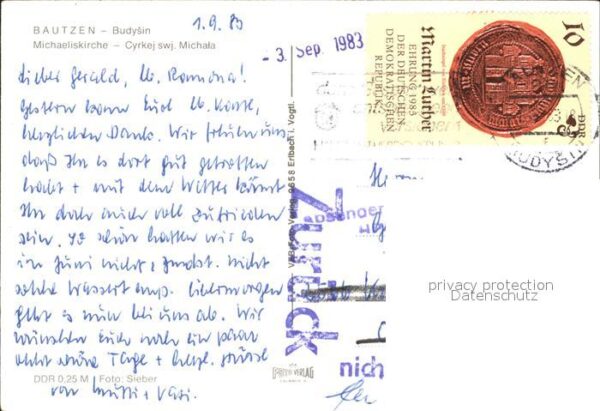 BAUTZEN – Budyšin
Michaeliskirche – Cyrkej swj. Michała
1.9.83
- 3. Sep. 1983
Lieber Gerald, lb. Ramona!
Gestern kam Eure lb. Karte,
herzlichen Dank. Wir freuen uns
daß Ihr es dort gut getroffen
habt + mit dem Wetter könnt
Ihr doch auch voll zufrieden
sein. So schön hatten wir es
im Juni nicht, zumindest nicht
solche Wassertemp. Übermorgen
geht es nun bei uns ab. Wir
wünschen Euch noch ein paar
recht schöne Tage + herzl. Grüße
von Mutti + Vati.
DDR 0,25 M Foto: Sieber
VEB Foto-Verlag 9658 Erlbach i. Vogtl.
10
DDR
Martin Luther
EHRUNG 1983
DER DEUTSCHEN
DEMOKRATISCHEN
REPUBLIK
BUDYŠIN
Herrn
Absender
Zurück
nich
privacy protection
Datenschutz